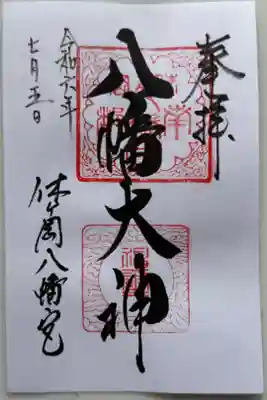 奉拝
八幡大神
休岡八幡宮
令和六年
七月五日